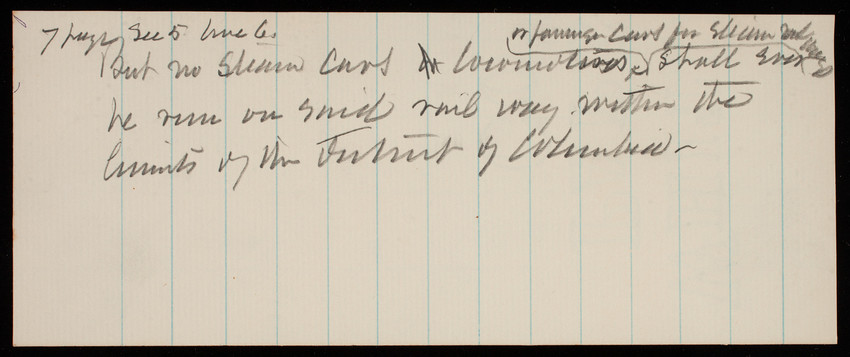 7 page Sec 5 line 6.
or passenger Cars for Steam rail ways
But no Steam Cars or locomotives, shall ever
be run on said rail way within the
limits of the District of Columbia -